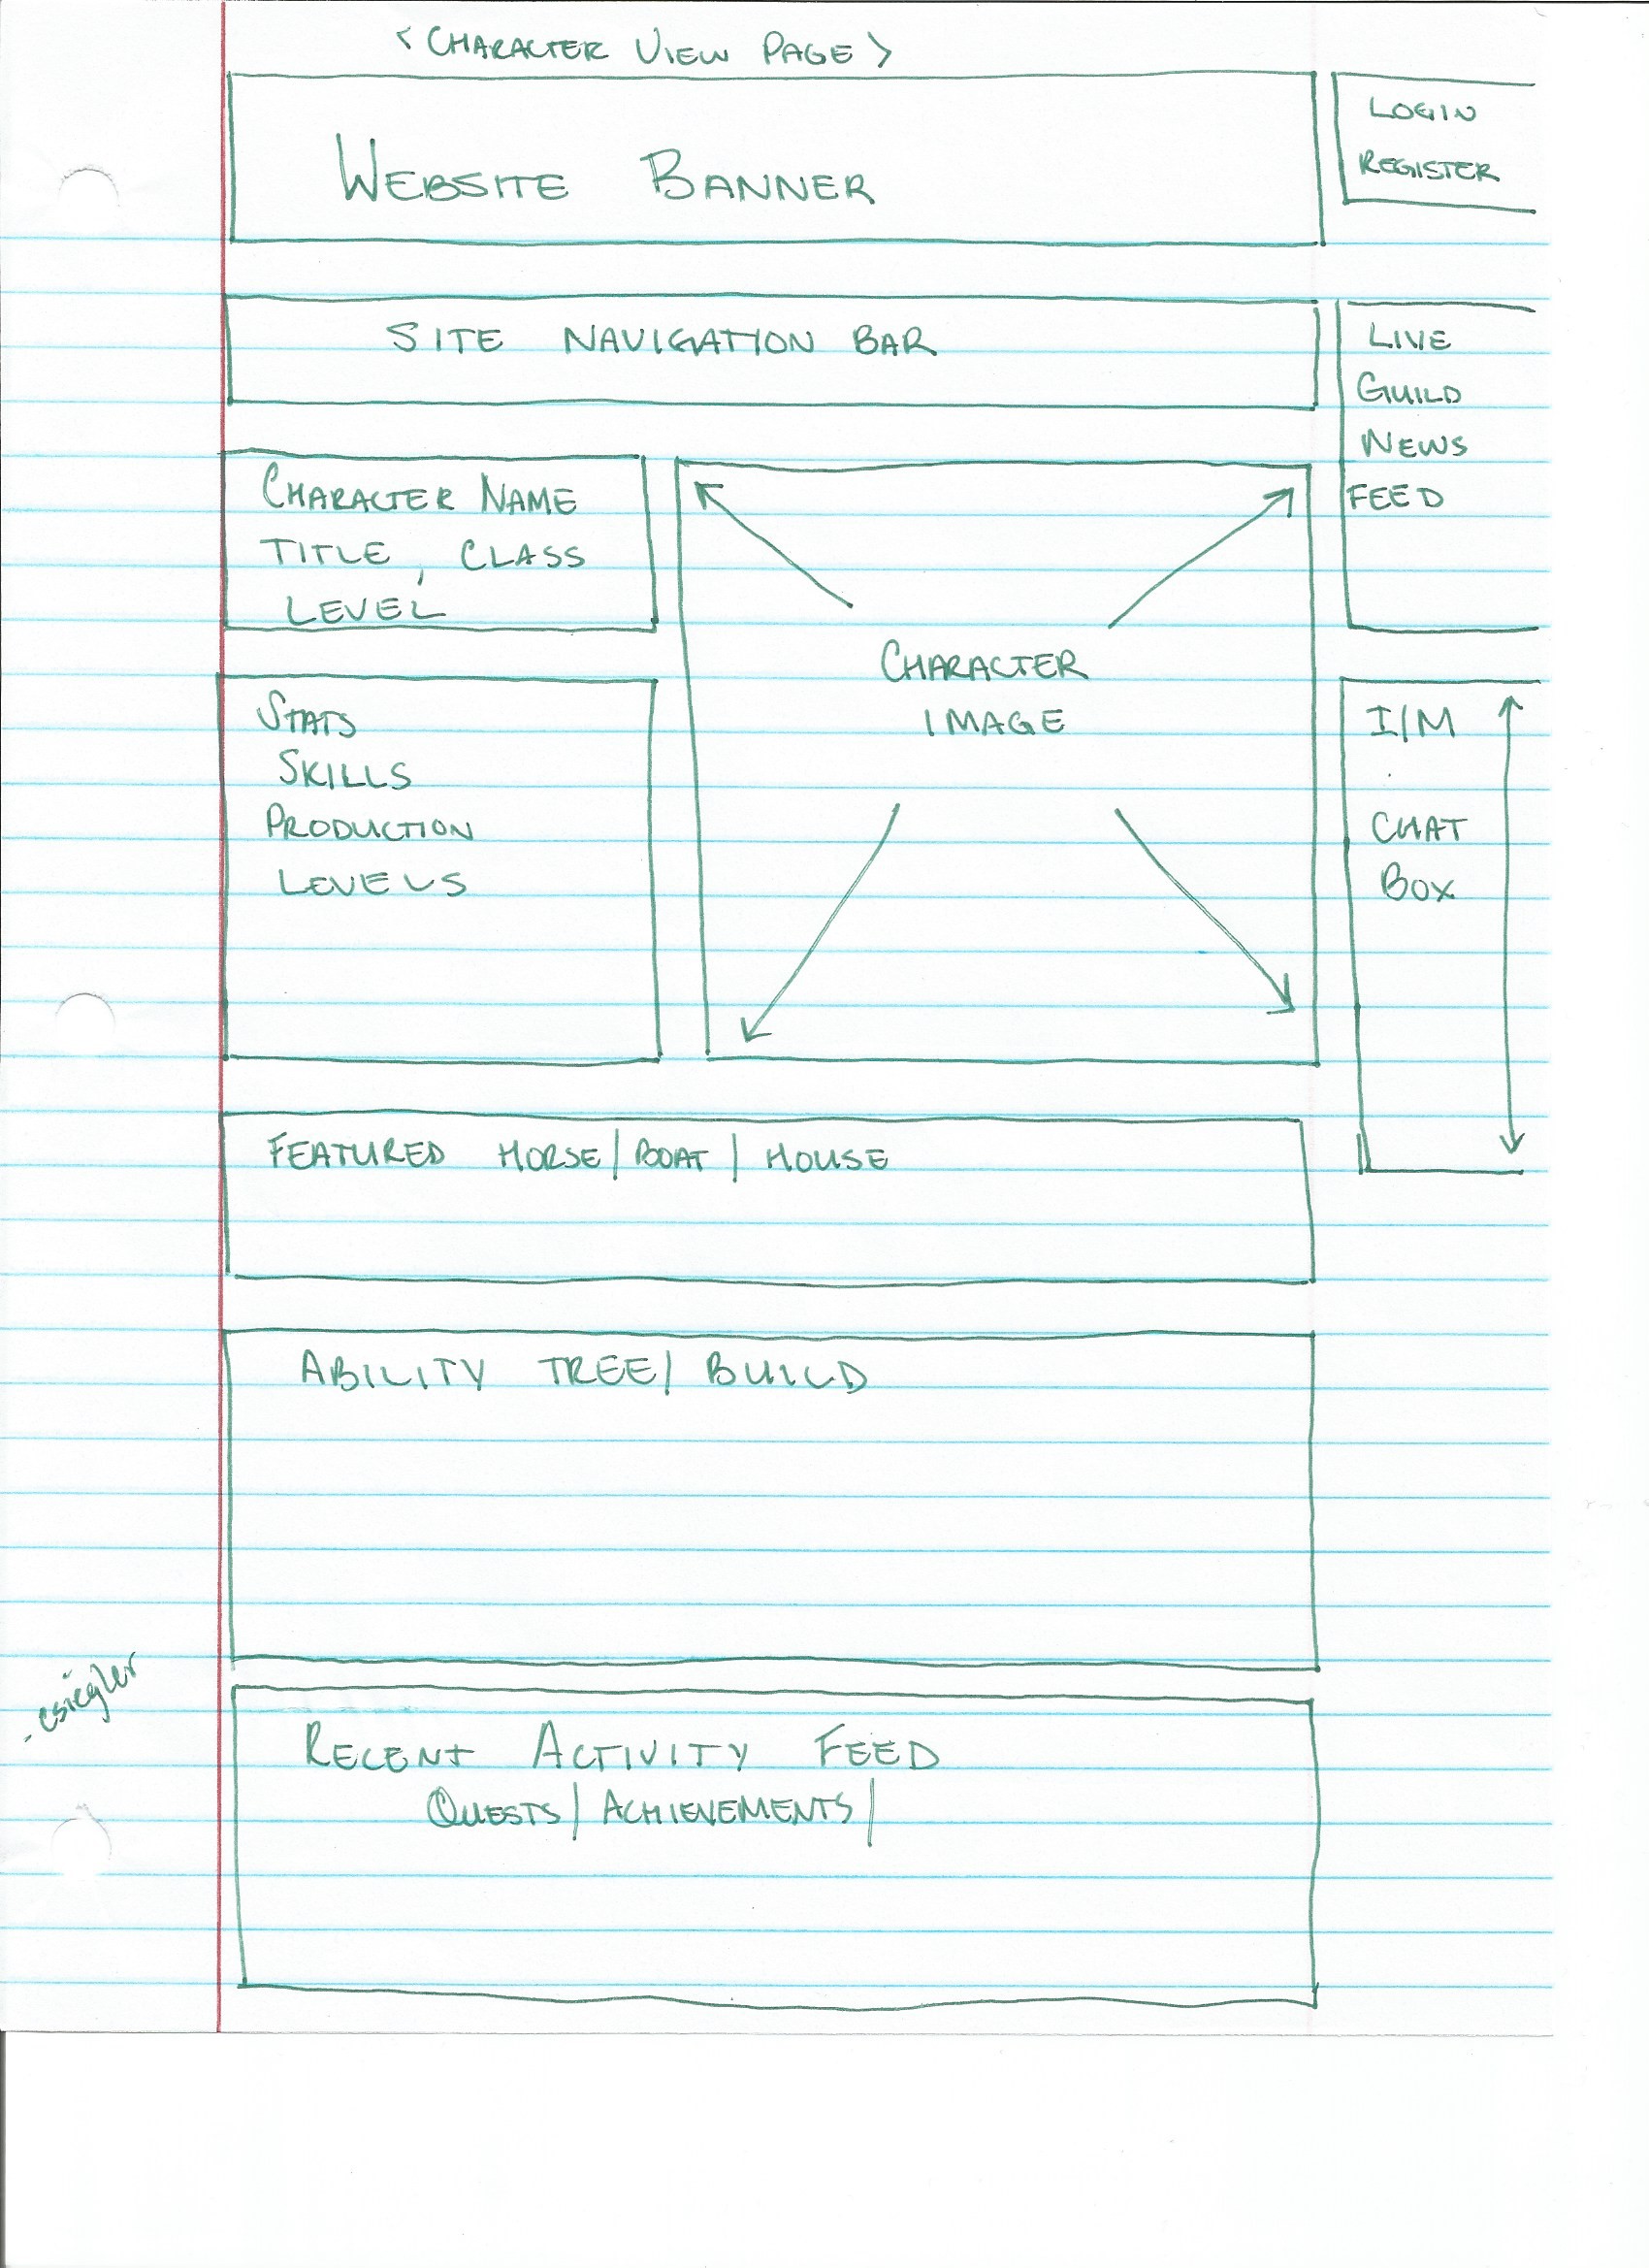 < CHARACTER VIEW PAGE >
WEBSITE BANNER
LOGIN
REGISTER
SITE NAVIGATION BAR
LIVE
GUILD
NEWS
FEED
CHARACTER NAME
TITLE, CLASS
LEVEL
CHARACTER
IMAGE
STATS
SKILLS
PRODUCTION
LEVELS
I/M
CHAT
BOX
FEATURED HORSE/BOAT/HOUSE
ABILITY TREE/BUILD
RECENT ACTIVITY FEED
QUESTS/ACHIEVEMENTS/
-esiegler